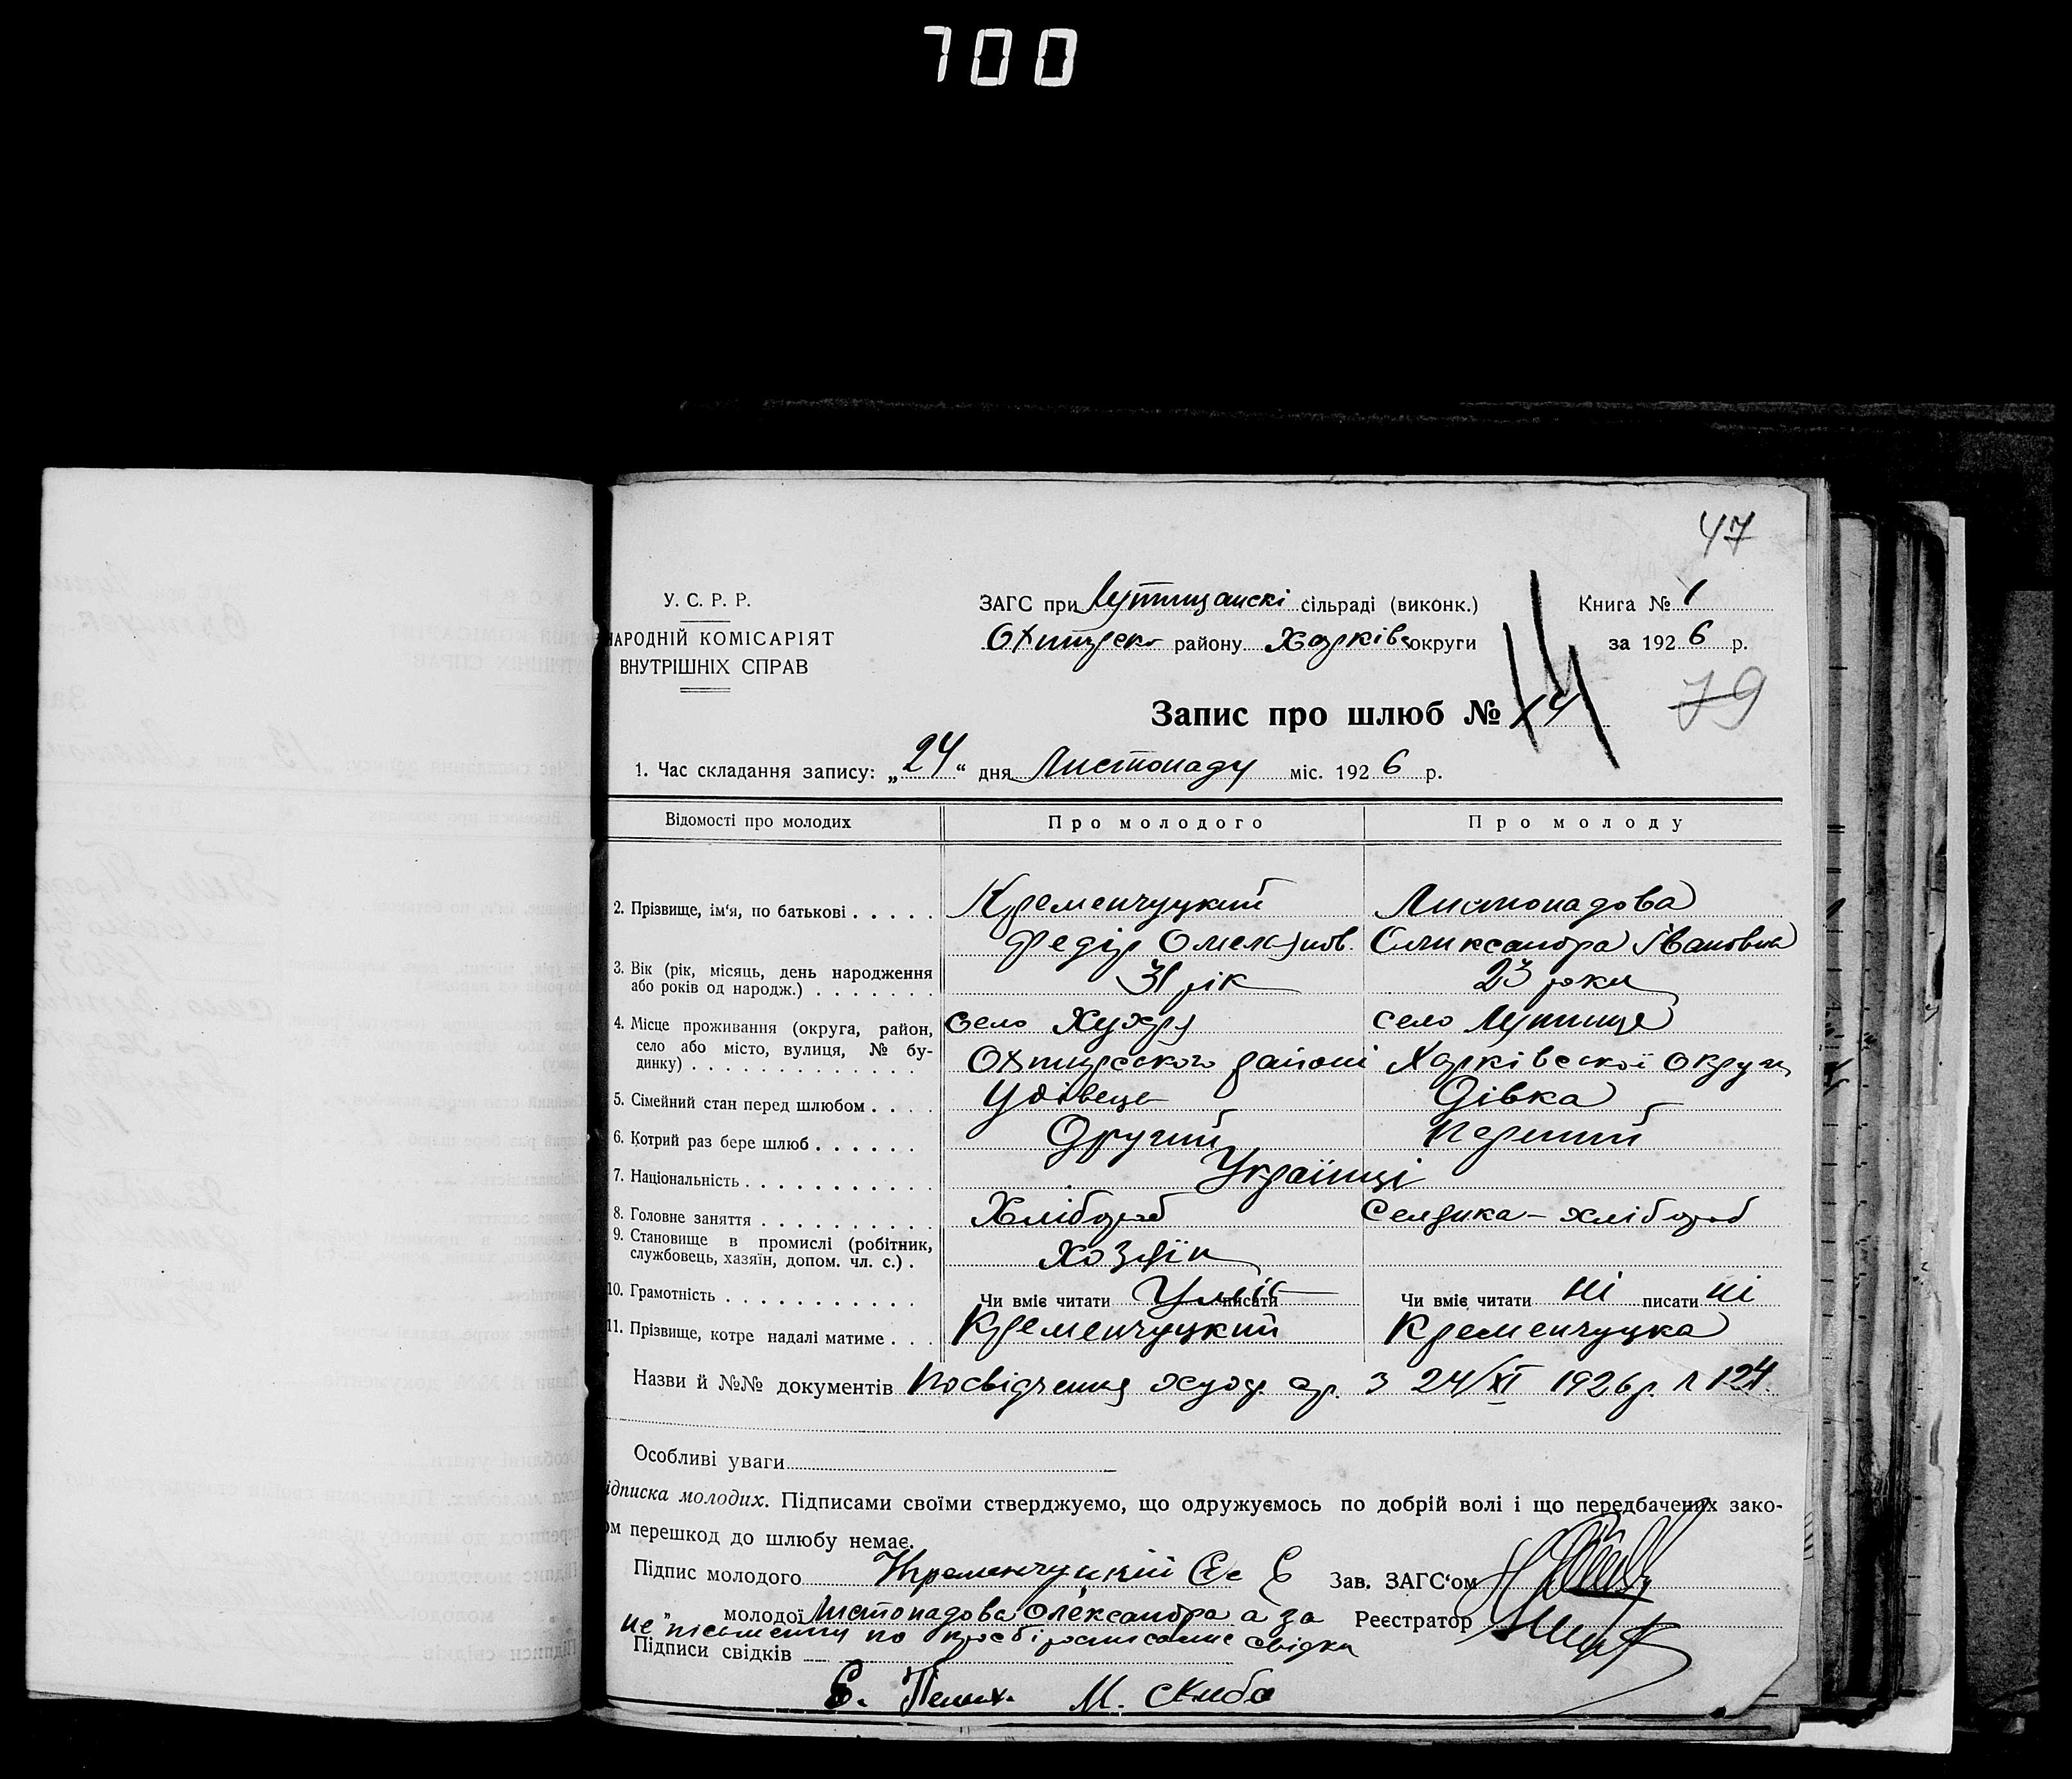 700
47
У. С. Р. Р.
НАРОДНІЙ КОМІСАРІЯТ
ВНУТРІШНІХ СПРАВ
ЗАГС при Лутищанскі сільраді (виконк.)
Охтирск району Харківс округи
Книга № 1
за 1926 р.
Запис про шлюб № 14
79
1. Час складання запису: „24“ дня Листопаду міс. 1926 р.
Відомості про молодих Про молодого Про молоду
2. Прізвище, ім'я, по батькові Кременчуцкий Листопадова
Федір Омельянов. Олександра Івановна
3. Вік (рік, місяць, день народження
або років од народж.) 31 рік 23 роки
4. Місце проживання (округа, район, село Хухря село Лутище
село або місто, вулиця, № бу-
динку) Охтирсского районі Харківської округи
5. Сімейний стан перед шлюбом Удовець Дівка
6. Котрий раз бере шлюб Другий Перший
7. Національність Українці
8. Головне заняття Хлібороб Селянка - хлібороб
9. Становище в промислі (робітник,
службовець, хазяїн, допом. чл. с.) Хозяїн
10. Грамотність Чи вміє читати Уміє писати Чи вміє читати ні писати ні
11. Прізвище, котре надалі матиме Кременчуцкий Кременчуцка
Назви й №№ документів Посвідчення з 24/XI 1926 р. № 124
Особливі уваги
ідписка молодих. Підписами своїми стверджуємо, що одружуємось по добрій волі і що передбачених зако-
ом перешкод до шлюбу немає.
Підпис молодого Кременчуцкий Зав. ЗАГС'ом
" молодої Листопадова Олександра а за Реєстратор
не письменну по просбі росписался свідки
Підписи свідків
Е. М. Скиба